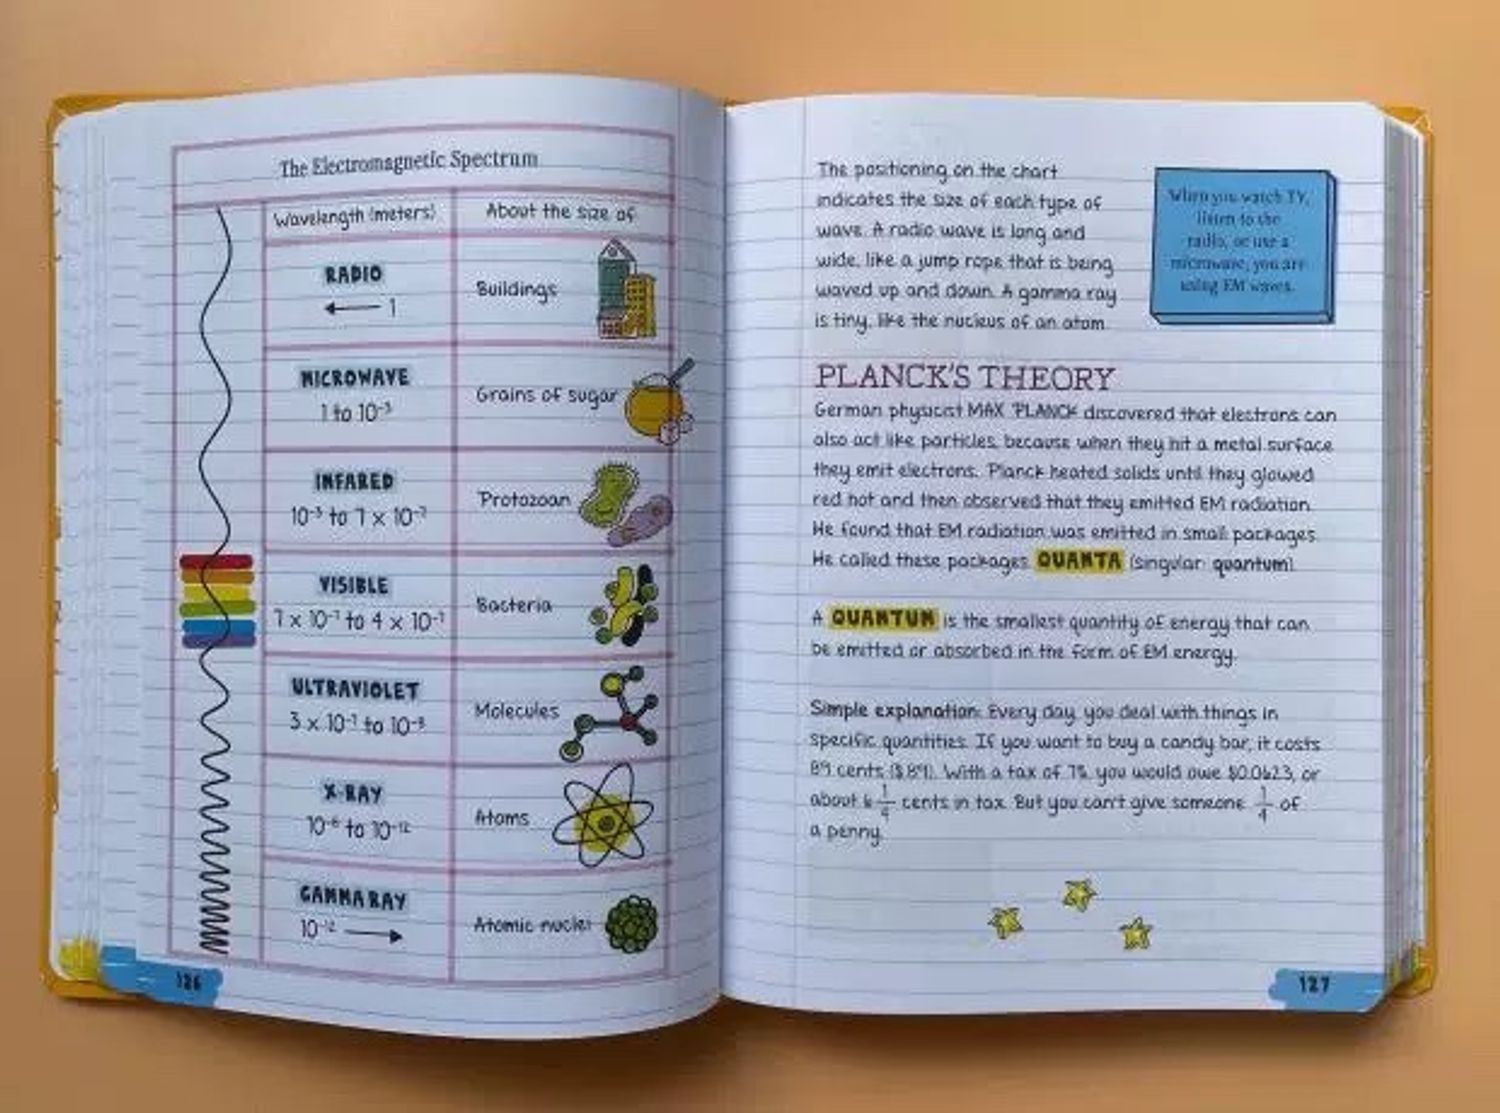 The Electromagnetic Spectrum
Wavelength (meters)
About the size of
RADIO
← 1
Buildings
MICROWAVE
1 to 10⁻³
Grains of sugar
INFARED
10⁻³ to 7 x 10⁻⁷
Protozoan
VISIBLE
7 x 10⁻⁷ to 4 x 10⁻⁷
Bacteria
ULTRAVIOLET
3 x 10⁻⁷ to 10⁻⁸
Molecules
X-RAY
10⁻⁸ to 10⁻¹²
Atoms
GAMMA RAY
10⁻¹² →
Atomic nuclei
126
The positioning on the chart
indicates the size of each type of
wave. A radio wave is long and
wide, like a jump rope that is being
waved up and down. A gamma ray
is tiny, like the nucleus of an atom.
When you watch TV,
listen to the
radio, or use a
microwave, you are
using EM waves.
PLANCK'S THEORY
German physicist MAX PLANCK discovered that electrons can
also act like particles, because when they hit a metal surface
they emit electrons. Planck heated solids until they glowed
red hot and then observed that they emitted EM radiation.
He found that EM radiation was emitted in small packages.
He called these packages QUANTA (singular: quantum).
A QUANTUM is the smallest quantity of energy that can
be emitted or absorbed in the form of EM energy.
Simple explanation: Every day, you deal with things in
specific quantities. If you want to buy a candy bar, it costs
89 cents ($.89). With a tax of 7%, you would owe $0.0623, or
about 6 1/4 cents in tax. But you can't give someone 1/4 of
a penny.
127